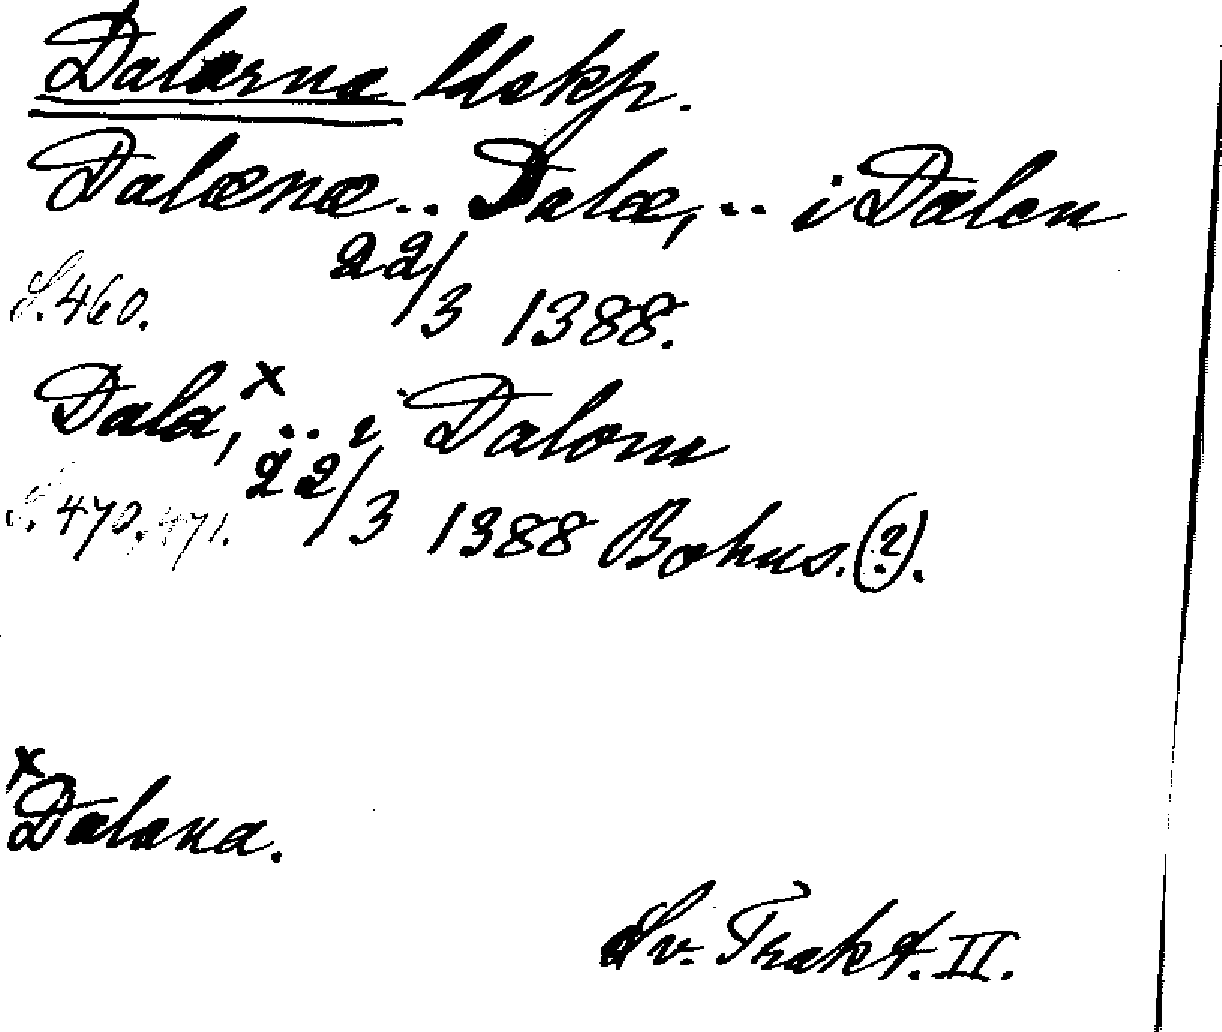 Dalarna ldskp.
Dalænæ .. Dalæ, .. i Dalen
S. 460. 22/3 1388.
Dala,x .. i Dalom
S. 470, 471. 22/3 1388 Bohus. (?).
x
Dalana.
Sv. Trakt. II.